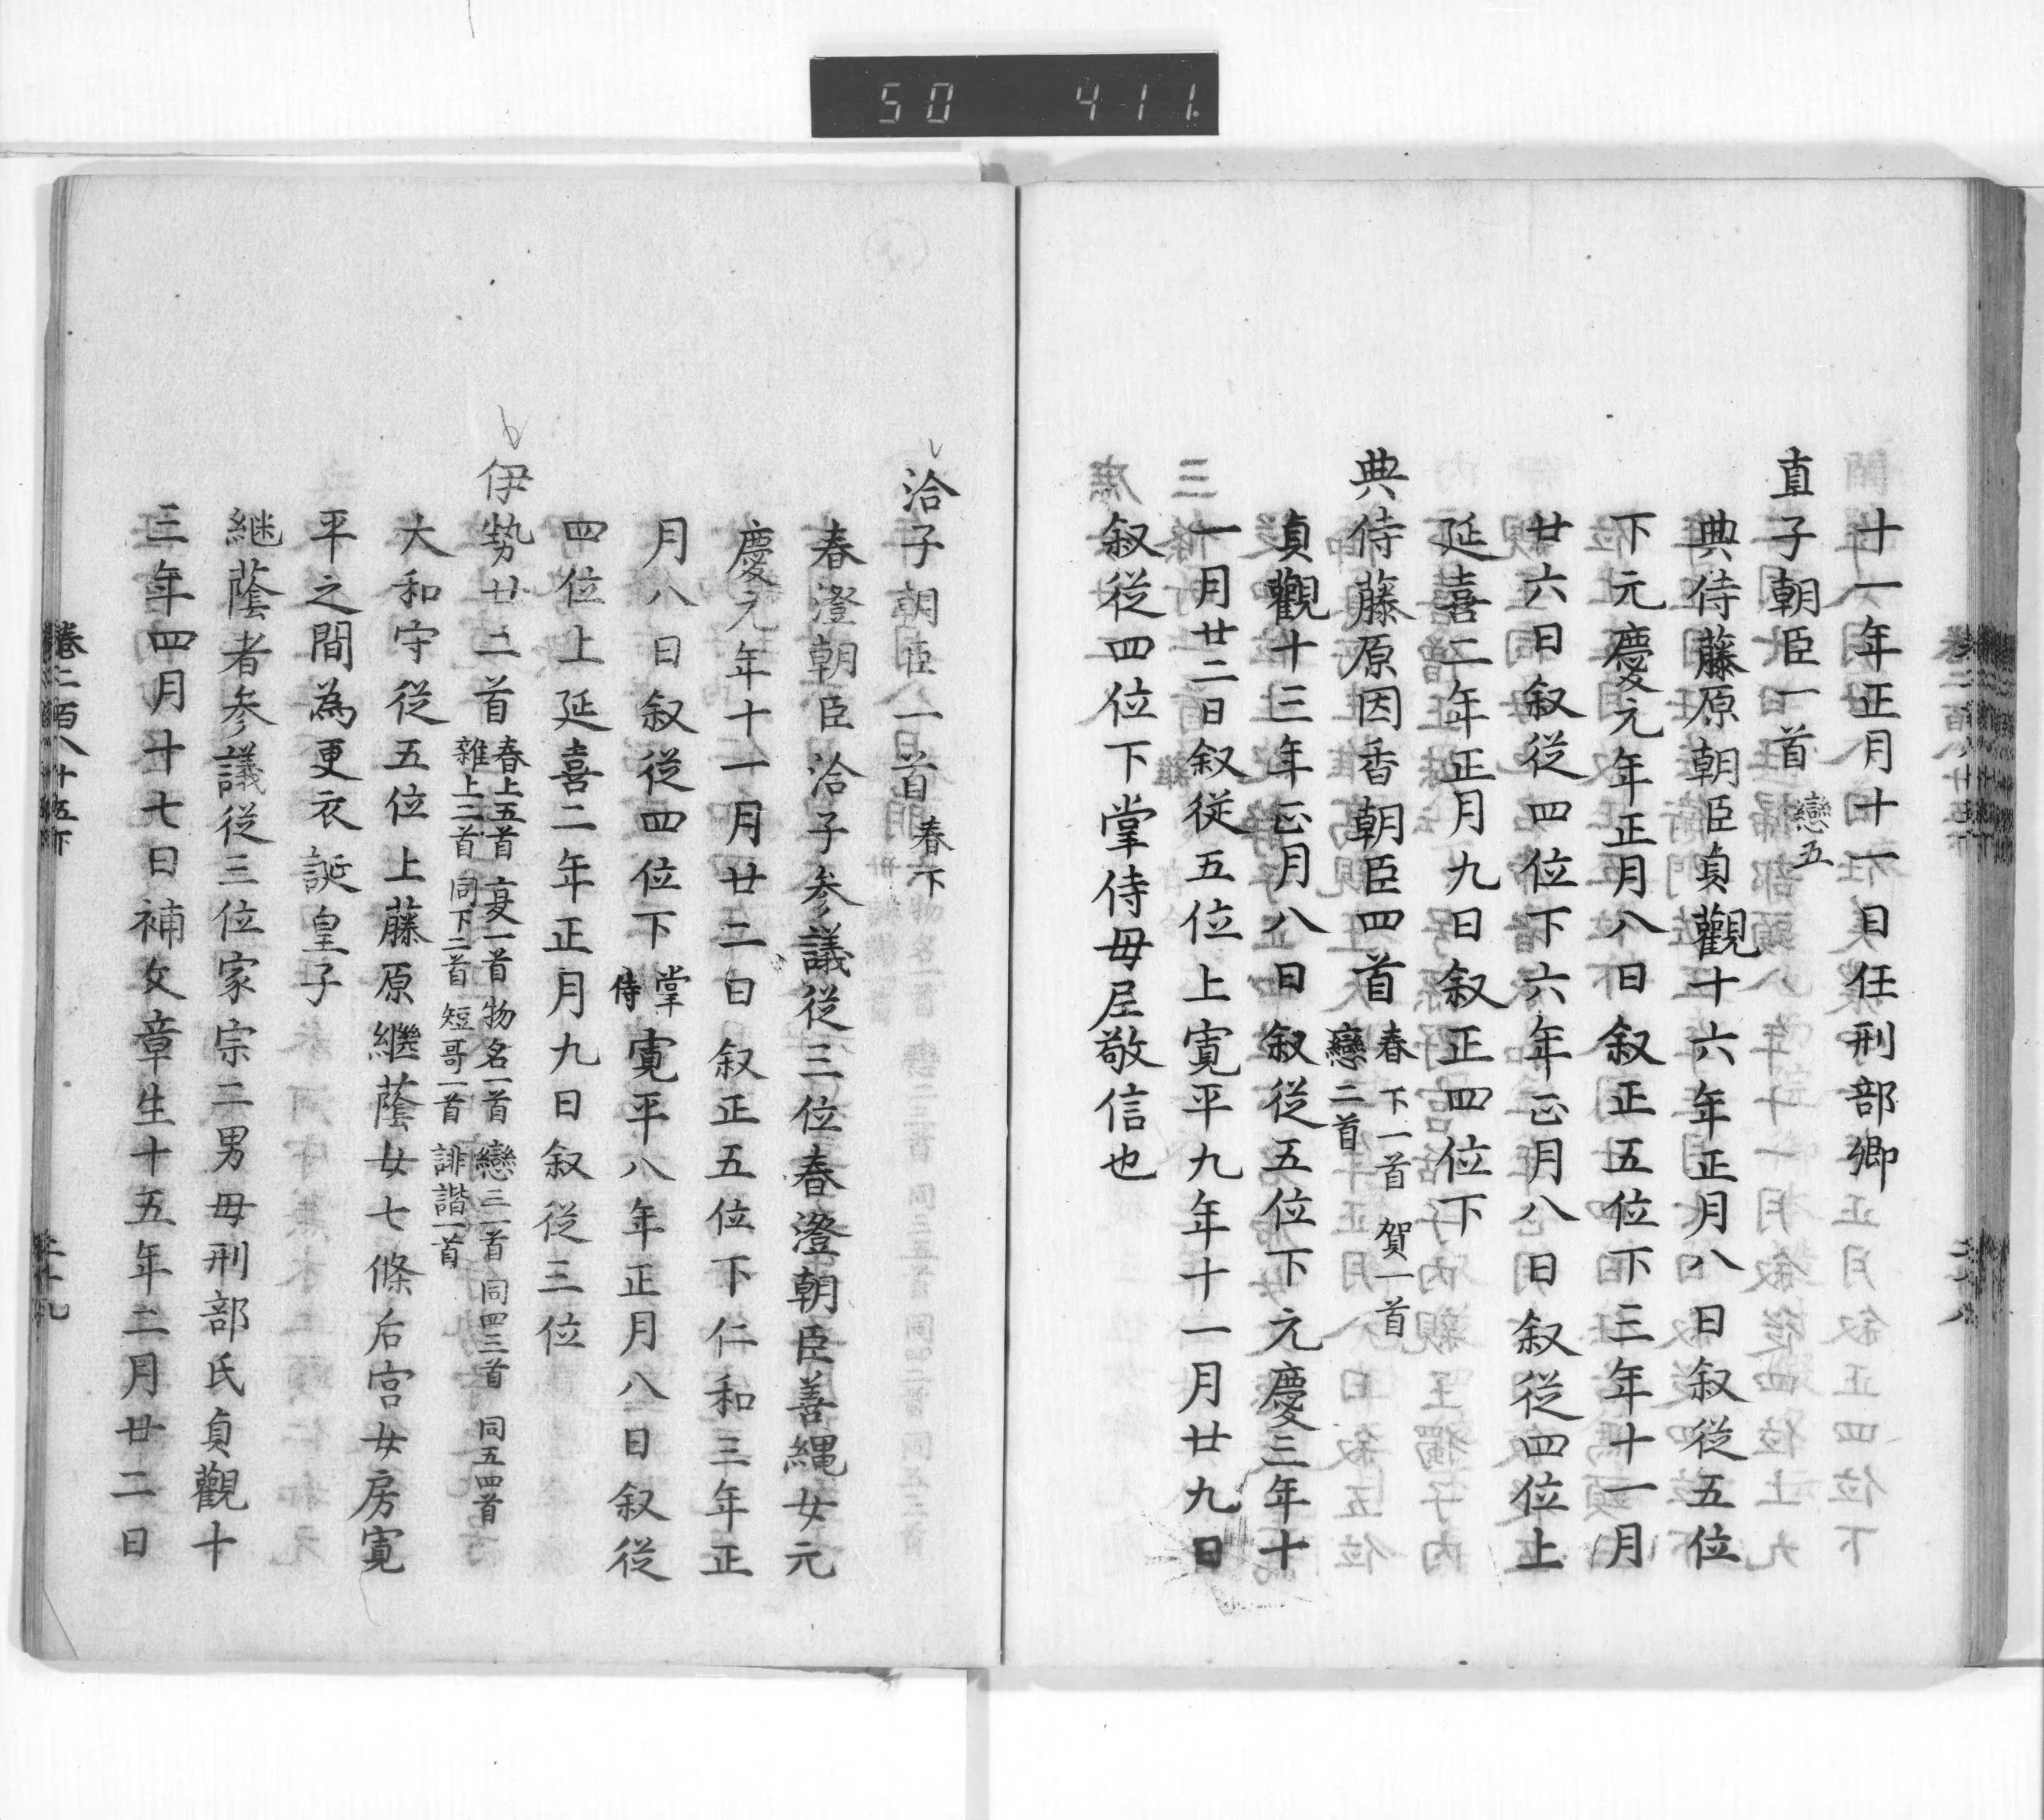 50 411
十一年正月十一日任刑部卿
直子朝臣一首 戀五
典侍藤原朝臣貞觀十六年正月八日叙従五位
下元慶元年正月八日叙正五位下三年十一月
廿六日叙従四位下六年正月八日叙従四位上
延喜二年正月九日叙正四位下
典侍藤原因香朝臣四首 春下一首 賀一首
戀二首
貞觀十三年正月八日叙従五位下元慶三年十
一月廿二日叙従五位上寛平九年十一月廿九日
叙従四位下掌侍母尼敬信也
洽子朝臣一首 春下
春澄朝臣洽子参議従三位春澄朝臣善縄女元
慶元年十一月廿二日叙正五位下仁和三年正
月八日叙従四位下 掌侍 寛平八年正月八日叙従
四位上延喜二年正月九日叙従三位
伊勢廿二首 春上五首 夏一首 物名一首 戀三首 同四三首 同五四首
雜上二首 同下二首 短哥一首 誹諧一首
大和守従五位上藤原継蔭女七條后宮女房寛
平之間為更衣誕皇子
継蔭者参議従三位家宗二男母刑部氏貞觀十
三年四月十七日補文章生十五年二月廿二日
卷二百八十五下
二十九